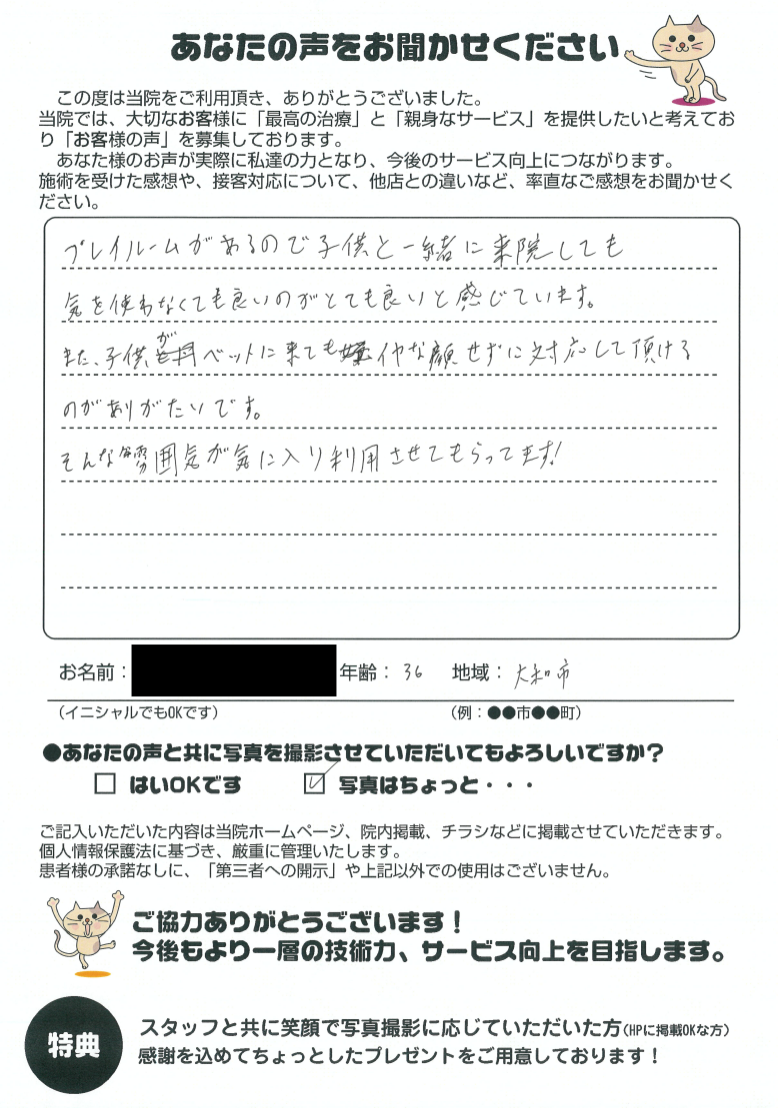 あなたの声をお聞かせください
この度は当院をご利用頂き、ありがとうございました。
当院では、大切なお客様に「最高の治療」と「親身なサービス」を提供したいと考えてお
り「お客様の声」を募集しております。
あなた様のお声が実際に私達の力となり、今後のサービス向上につながります。
施術を受けた感想や、接客対応について、他店との違いなど、率直なご感想をお聞かせく
ださい。
プレイルームがあるので子供と一緒に来院しても
気を使わなくても良いのがとても良いと感じています。
また、子供がベットに来てもイヤな顔せずに対応して頂ける
のがありがたいです。
そんな雰囲気が気に入り利用させてもらってます!
お名前： 年齢：36 地域：大和市
（イニシャルでもOKです） （例：●●市●●町）
●あなたの声と共に写真を撮影させていただいてもよろしいですか？
□ はいOKです ☑ 写真はちょっと・・・
ご記入いただいた内容は当院ホームページ、院内掲載、チラシなどに掲載させていただきます。
個人情報保護法に基づき、厳重に管理いたします。
患者様の承諾なしに、「第三者への開示」や上記以外での使用はございません。
ご協力ありがとうございます！
今後もより一層の技術力、サービス向上を目指します。
特典
スタッフと共に笑顔で写真撮影に応じていただいた方（HPに掲載OKな方）
感謝を込めてちょっとしたプレゼントをご用意しております！